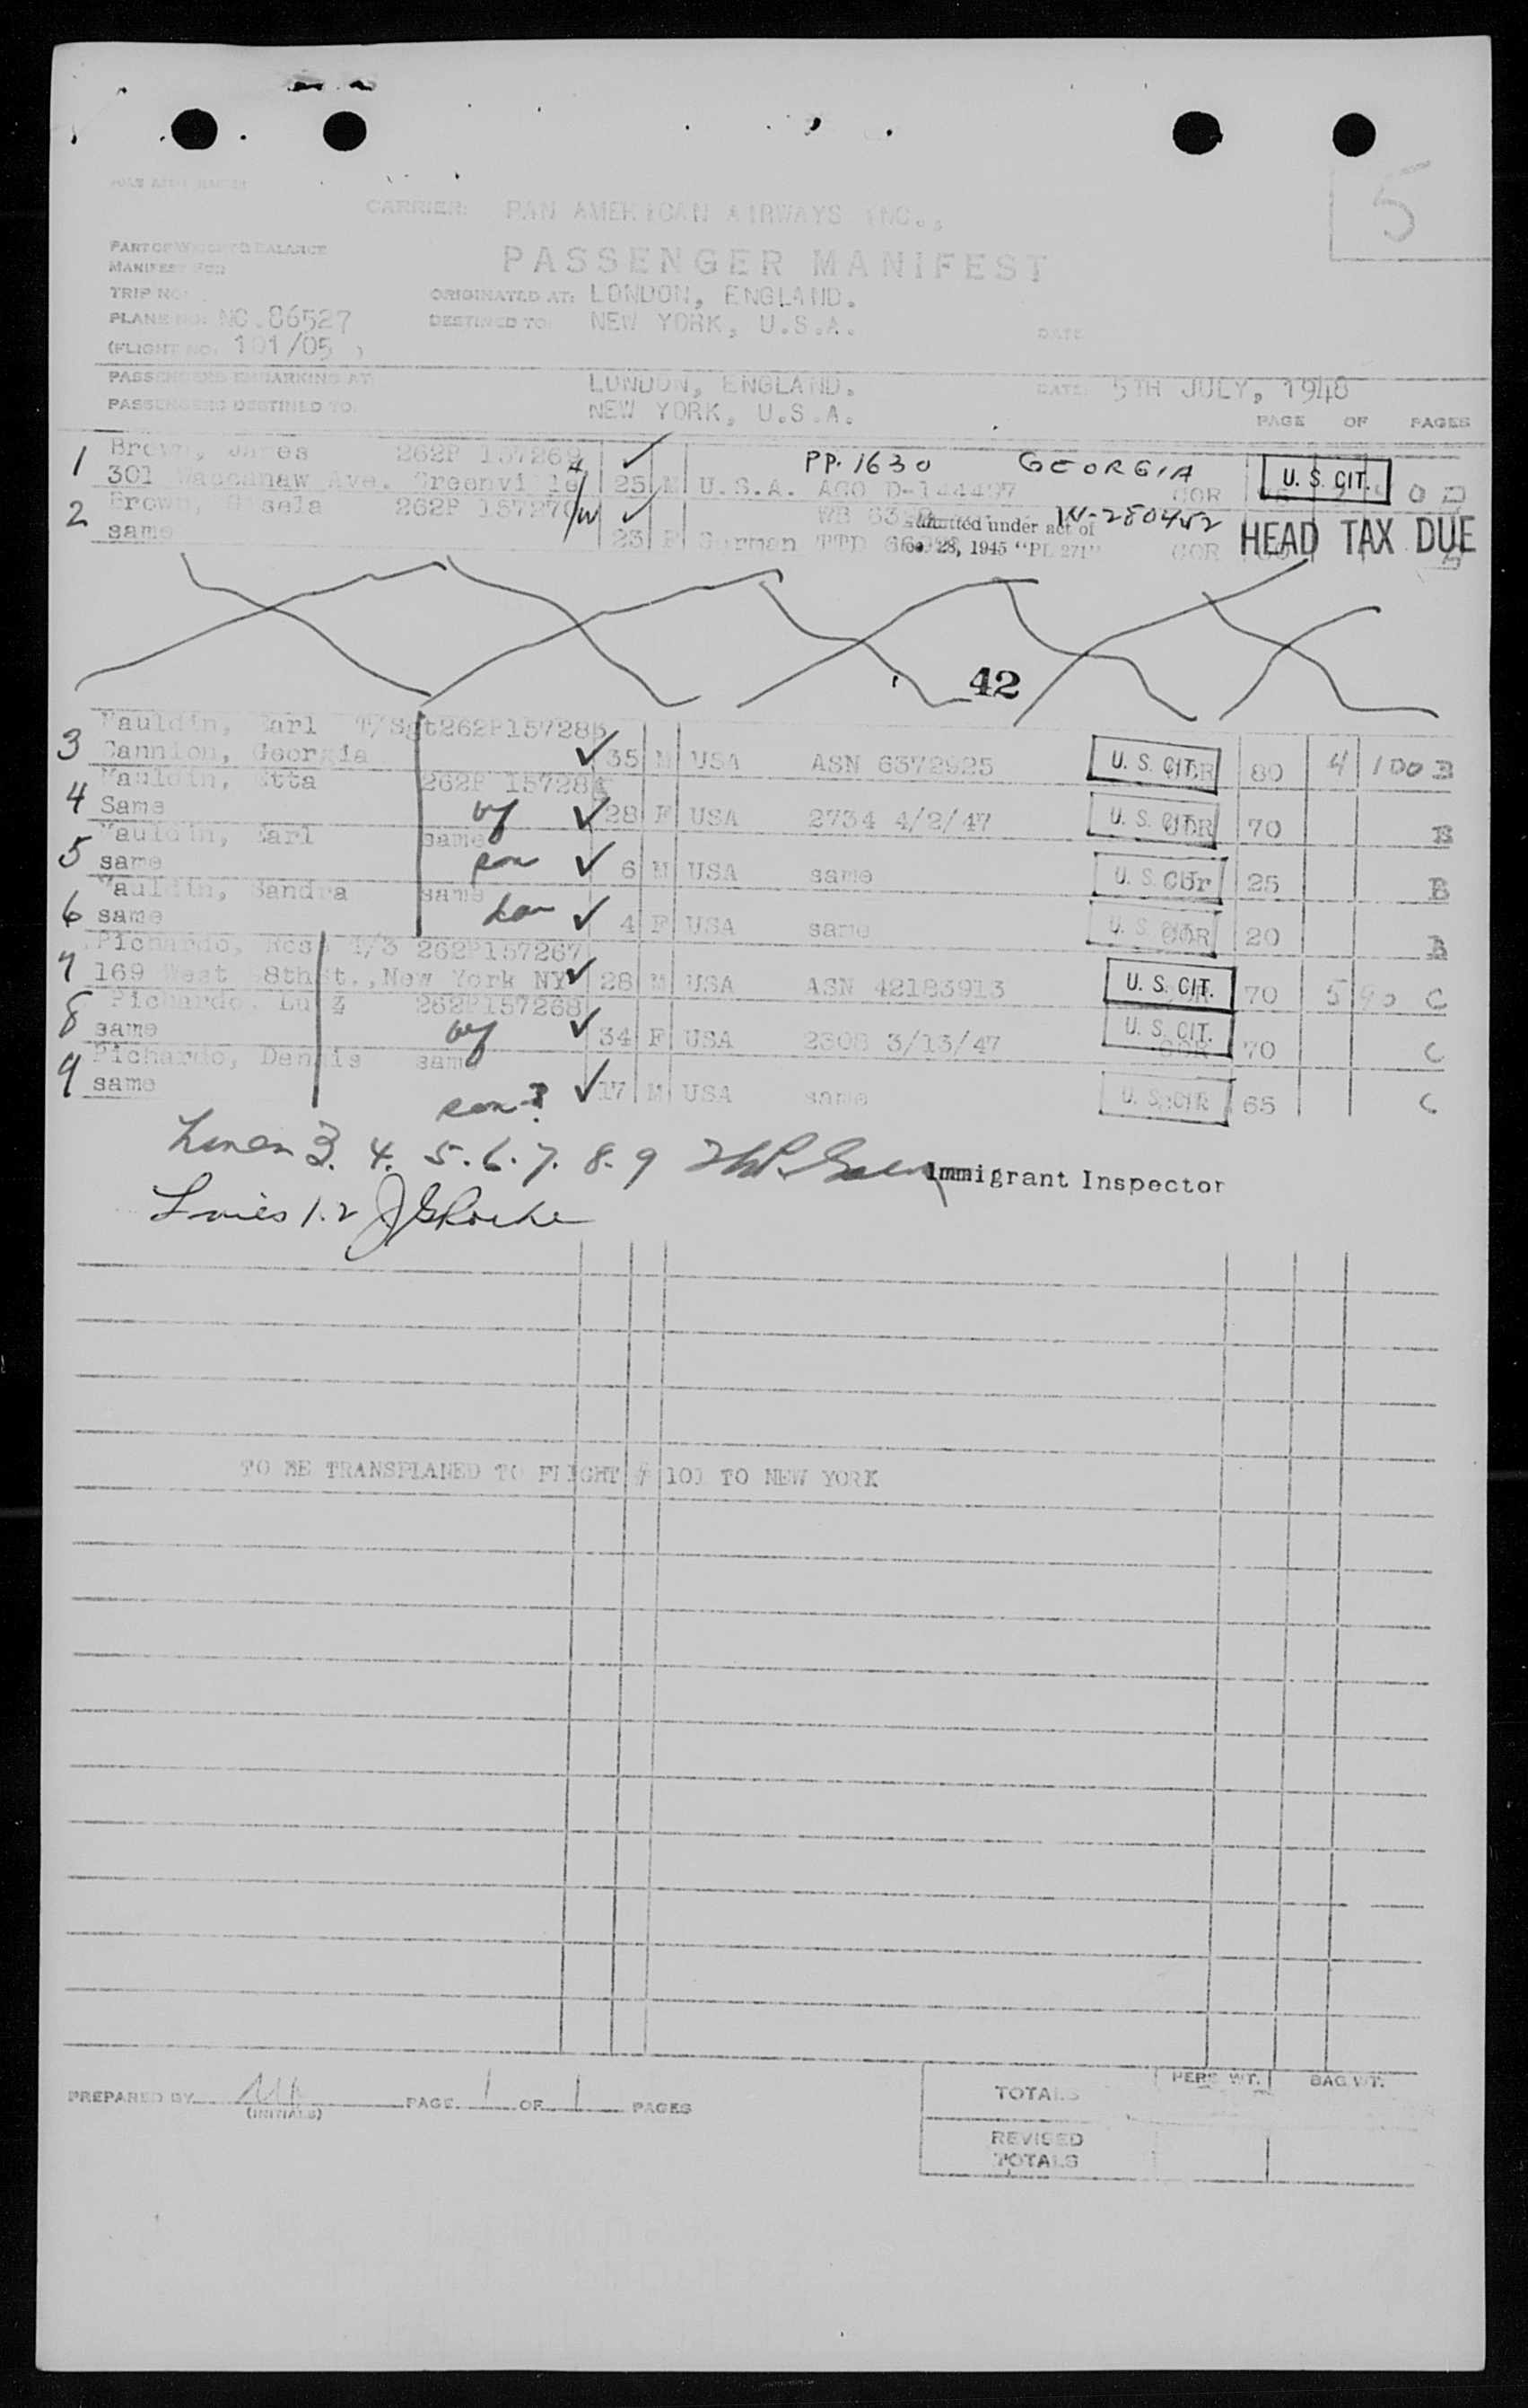 5
CARRIER: PAN AMERICAN AIRWAYS INC.,
PART OF WEIGHT & BALANCE
MANIFEST FOR
PASSENGER MANIFEST
TRIP NO:
ORIGINATED AT: LONDON, ENGLAND.
PLANE NO: NC.86527
DESTINED TO: NEW YORK, U.S.A.
DATE
(FLIGHT NO. 101/05 )
PASSENGERS EMBARKING AT: LONDON, ENGLAND. DATE: 5TH JULY, 1948
PASSENGERS DESTINED TO: NEW YORK, U.S.A.
PAGE OF PAGES
1 Brown, James 262P 157269 PP. 1630 GEORGIA
301 Ave. Greenville 25 M U.S.A. AGO D-144497 COR U. S. CIT.
2 Brown, Gisela 262P 157270 W-280452
same 23 F German TTD Admitted under act of Dec. 28, 1945 "PL 271" COR HEAD TAX DUE
42
3 Mauldin, Earl T/Sgt 262P157285
Cannion, Georgia 35 M USA ASN 6372925 U. S. CIT. COR 80 4 100 B
4 Mauldin, Etta 262P 15728
Same wf 28 F USA 2734 4/2/47 U. S. CIT. COR 70 B
5 Mauldin, Earl same
same son 6 M USA same U. S. CIT. COr 25 B
6 Mauldin, Sandra same
same dau 4 F USA same U. S. CIT. COR 20 B
7 Pichardo, Ross T/3 262P157267
169 West 8th St., New York NY 28 M USA ASN 42183913 U. S. CIT. 70 5 90 C
8 Pichardo, Luz 262P157268
same wf 34 F USA 2308 3/13/47 U. S. CIT. COR 70 C
9 Pichardo, Dennis same
same son? 17 M USA same U. S. CIT. COR 65 C
Lines 3. 4. 5. 6. 7. 8. 9 Immigrant Inspector
Lines 1. 2
TO BE TRANSPLANED TO FLIGHT # 101 TO NEW YORK
PREPARED BY (INITIALS) PAGE 1 OF 1 PAGES
PERS WT. BAG WT.
TOTALS
REVISED
TOTALS